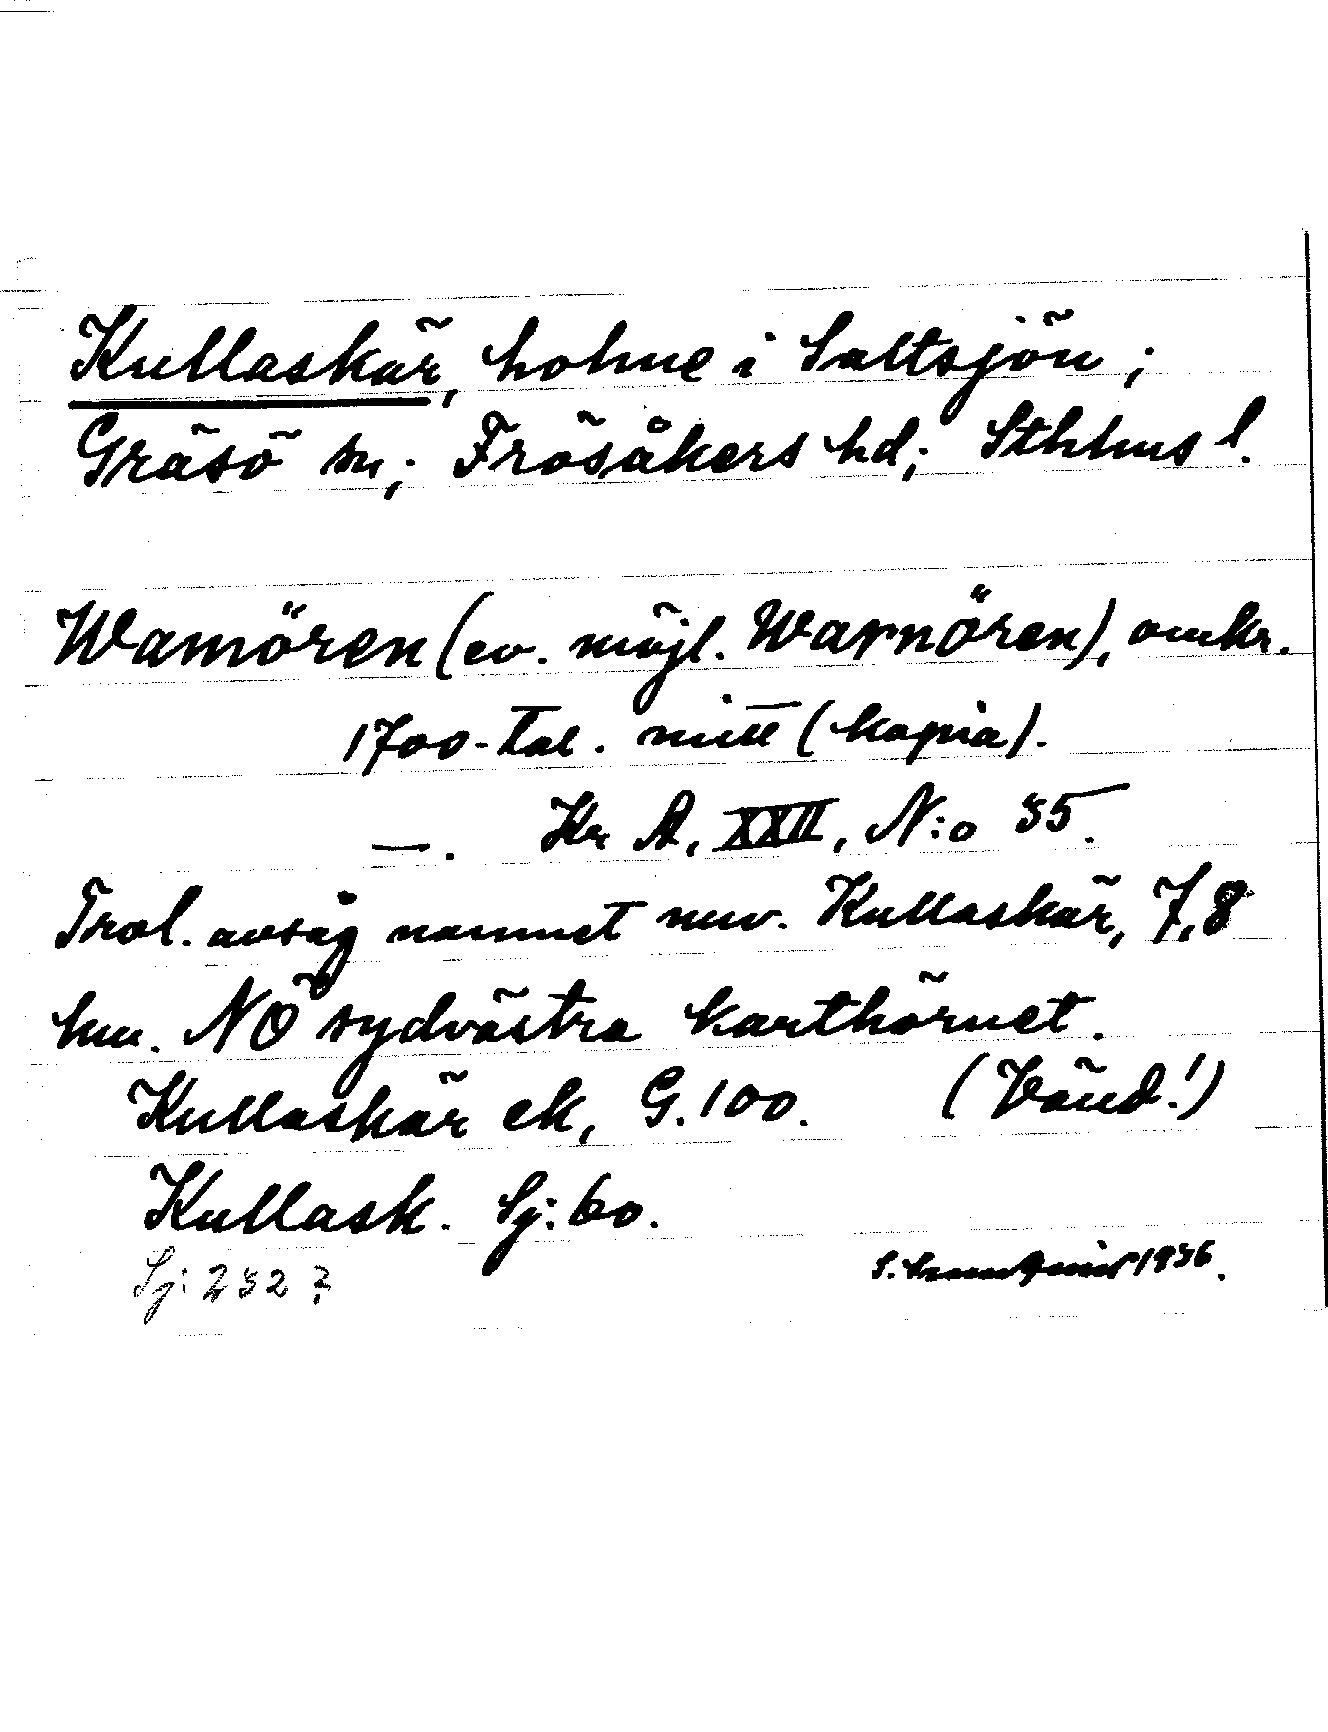 Kullaskär, holme i Saltsjön;
Gräsö sn; Frösåkers hd; Sthlms l.
Wamören (ev. möjl. Warnören), omkr.
1700-tal. mitt (kopia).
—. Kr A, XXII, N:o 35.
Trol. avsåg namnet nuv. Kullaskär, 7,8
km. NÖ sydvästra karthörnet.
Kullaskär ek, G. 100. (Vänd!)
Kullask. Sj: 60.
Sj: 232?
S. 1936.